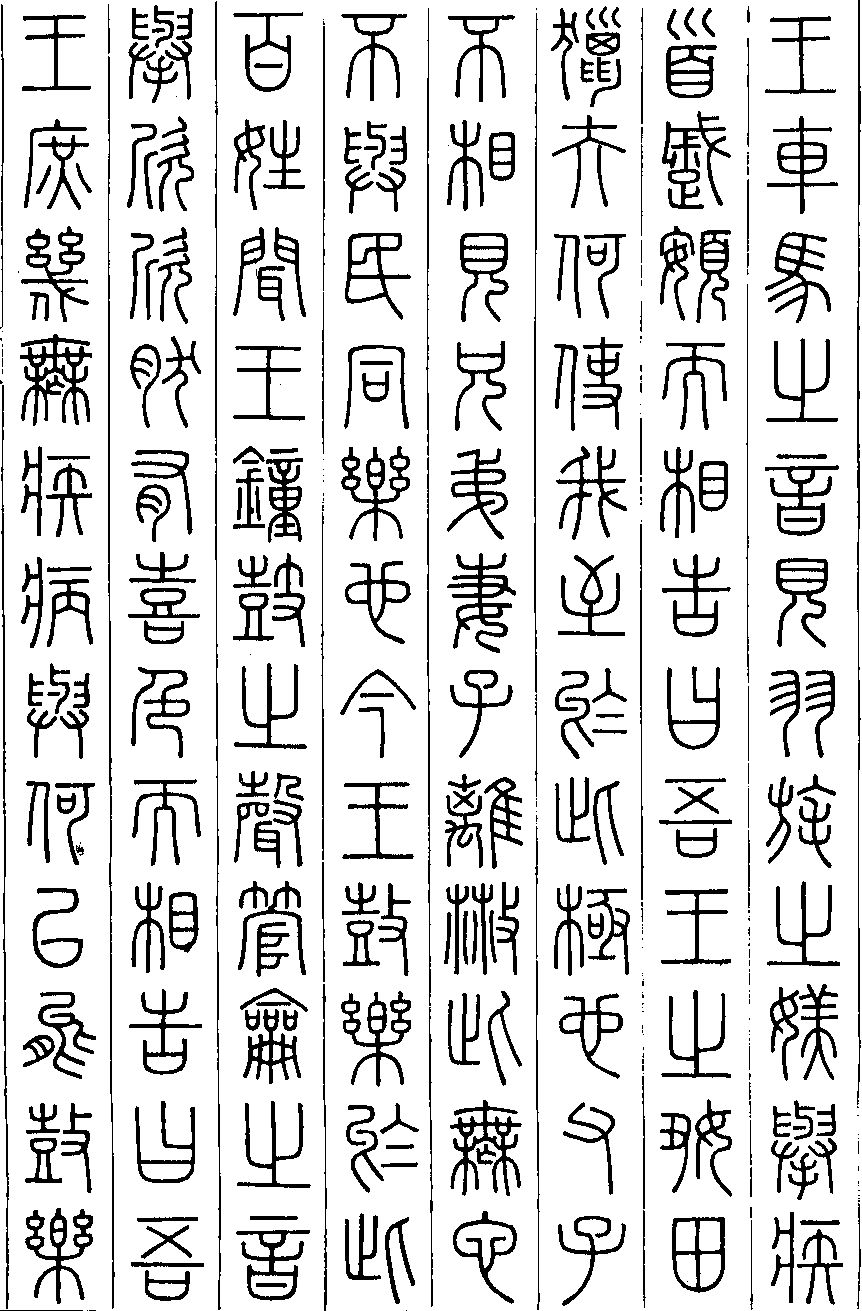 王車馬之音見羽旄之美舉疾
首蹙頞而相告曰吾王之好田
獵夫何使我至於此極也父子
不相見兄弟妻子離散此無他
不與民同樂也今王鼓樂於此
百姓聞王鐘鼓之聲管籥之音
舉欣欣然有喜色而相告曰吾
王庶幾無疾病與何以能鼓樂